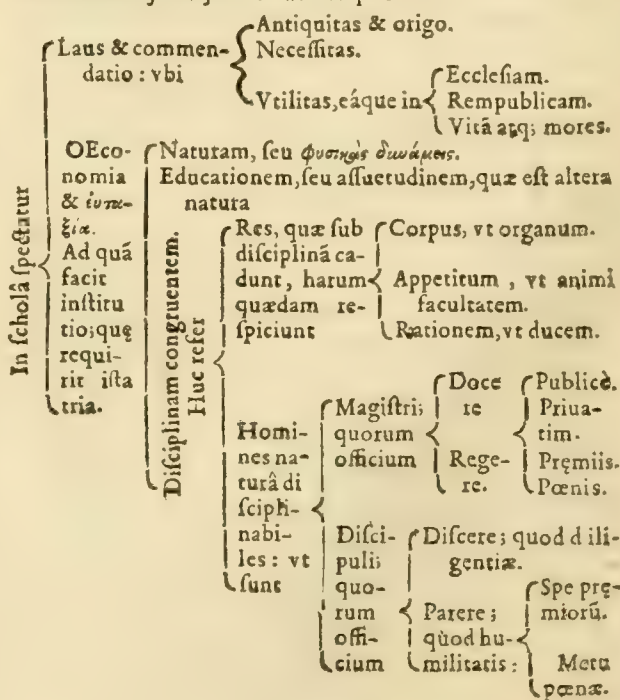 Antiquitas & origo.
Laus & commen-
datio : vbi
Neceſſitas.
Vtilitas, eáque in
Eccleſiam.
Rempublicam.
Vitā atq; mores.
In ſcholâ ſpectatur
OEco-
nomia
& ἐυτα-
ξία.
Ad quā
facit
inſtitu
tio; quę
requi-
rit iſta
tria.
Naturam, ſeu φυσικὰς δυνάμεις.
Educationem, ſeu aſſuetudinem, quæ eſt altera
natura
Diſciplinam congruentem.
Huc refer
Res, quæ ſub
diſciplinā ca-
dunt, harum
quædam re-
ſpiciunt
Corpus, vt organum.
Appetitum , vt animi
facultatem.
Rationem, vt ducem.
Homi-
nes na-
turâ di
ſcipli-
nabi-
les : vt
ſunt
Magiſtri;
quorum
officium
Doce
re
Publicè.
Priua-
tim.
Rege-
re.
Pręmiis.
Pœnis.
Diſci-
puli;
quo-
rum
offi-
cium
Diſcere; quod d ili-
gentiæ.
Parere;
quòd hu-
militatis :
Spe prę-
miorū.
Metu
pœnæ.